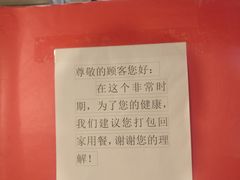 尊敬的顾客您好：
在这个非常时
期，为了您的健康，
我们建议您打包回
家用餐，谢谢您的理
解！